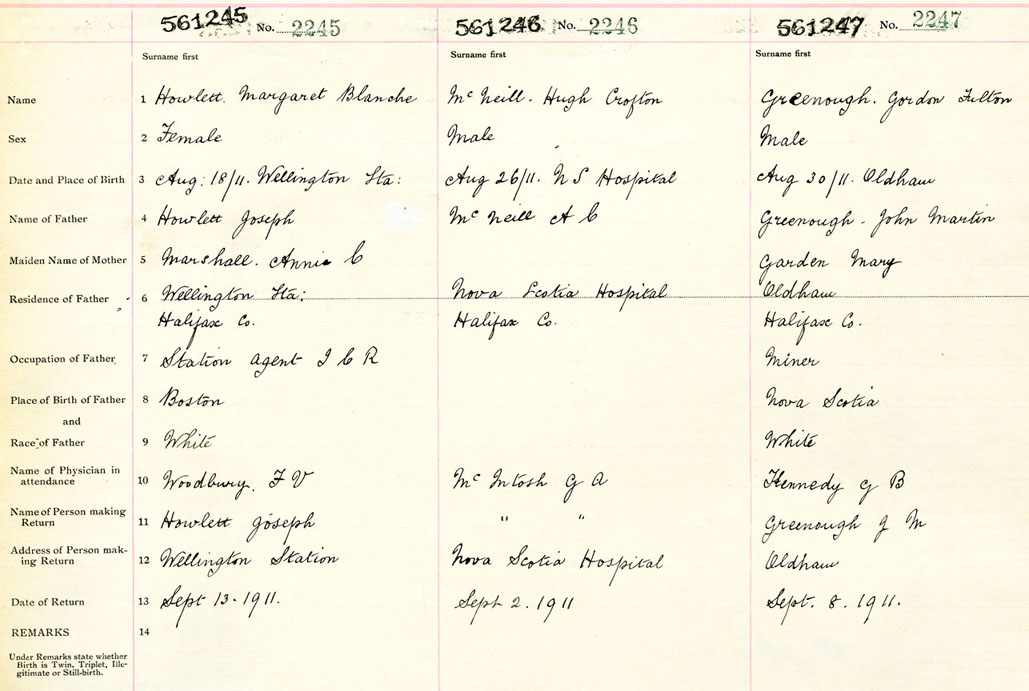 561245 No. 2245 561246 No. 2246 561247 No. 2247
Surname first Surname first Surname first
Name 1 Howlett. Margaret Blanche Mc Neill. Hugh Crofton Greenough. Gordon Fulton
Sex 2 Female Male Male
Date and Place of Birth 3 Aug: 18/11. Wellington Sta: Aug 26/11. N S Hospital Aug 30/11. Oldham
Name of Father 4 Howlett Joseph Mc Neill A C Greenough. John Martin
Maiden Name of Mother 5 Marshall. Annie C Garden Mary
Residence of Father 6 Wellington Sta: Nova Scotia Hospital Oldham
Halifax Co. Halifax Co. Halifax Co.
Occupation of Father 7 Station Agent I C R Miner
Place of Birth of Father 8 Boston Nova Scotia
and
Race of Father 9 White White
Name of Physician in
attendance 10 Woodbury. F V Mc Intosh G A Kennedy G B
Name of Person making
Return 11 Howlett Joseph " " Greenough J M
Address of Person mak-
ing Return 12 Wellington Station Nova Scotia Hospital Oldham
Date of Return 13 Sept 13. 1911. Sept 2. 1911 Sept. 8. 1911.
REMARKS 14
Under Remarks state whether
Birth is Twin, Triplet, Ille-
gitimate or Still-birth.